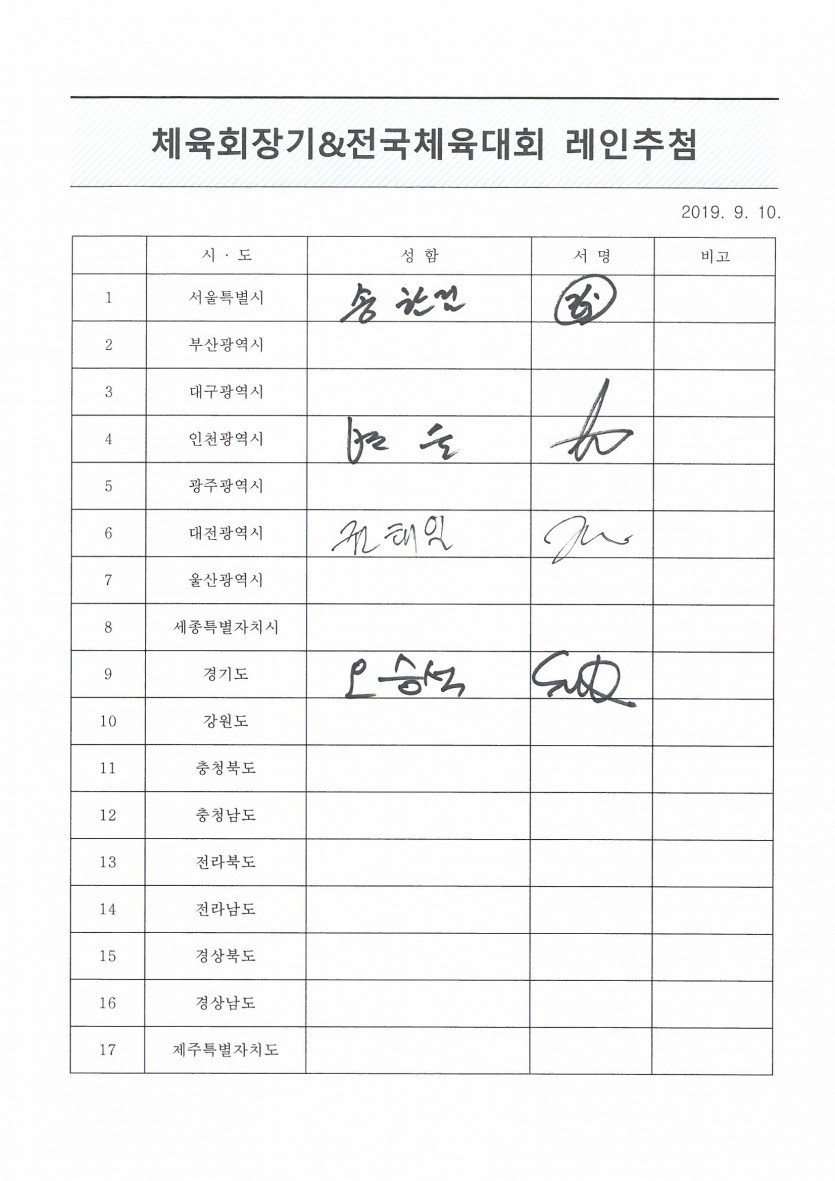 체육회장기&전국체육대회 레인추첨
2019. 9. 10.
시 · 도 성 함 서 명 비고
1 서울특별시 송
2 부산광역시
3 대구광역시
4 인천광역시
5 광주광역시
6 대전광역시 권태일
7 울산광역시
8 세종특별자치시
9 경기도 오승석
10 강원도
11 충청북도
12 충청남도
13 전라북도
14 전라남도
15 경상북도
16 경상남도
17 제주특별자치도